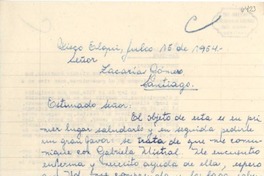 4483
Diego Elqui, julio 15 de 1954.-
Señor
Zacarías Gómez
Santiago.
Estimado Señor:
El objeto de esta es en pri
mer lugar saludarlo y en seguida pedirle
un gran favor: se trata de que me comu
nique con Gabriela Mistral. Me encuentro
enferma y necesito ayuda de ella, espero